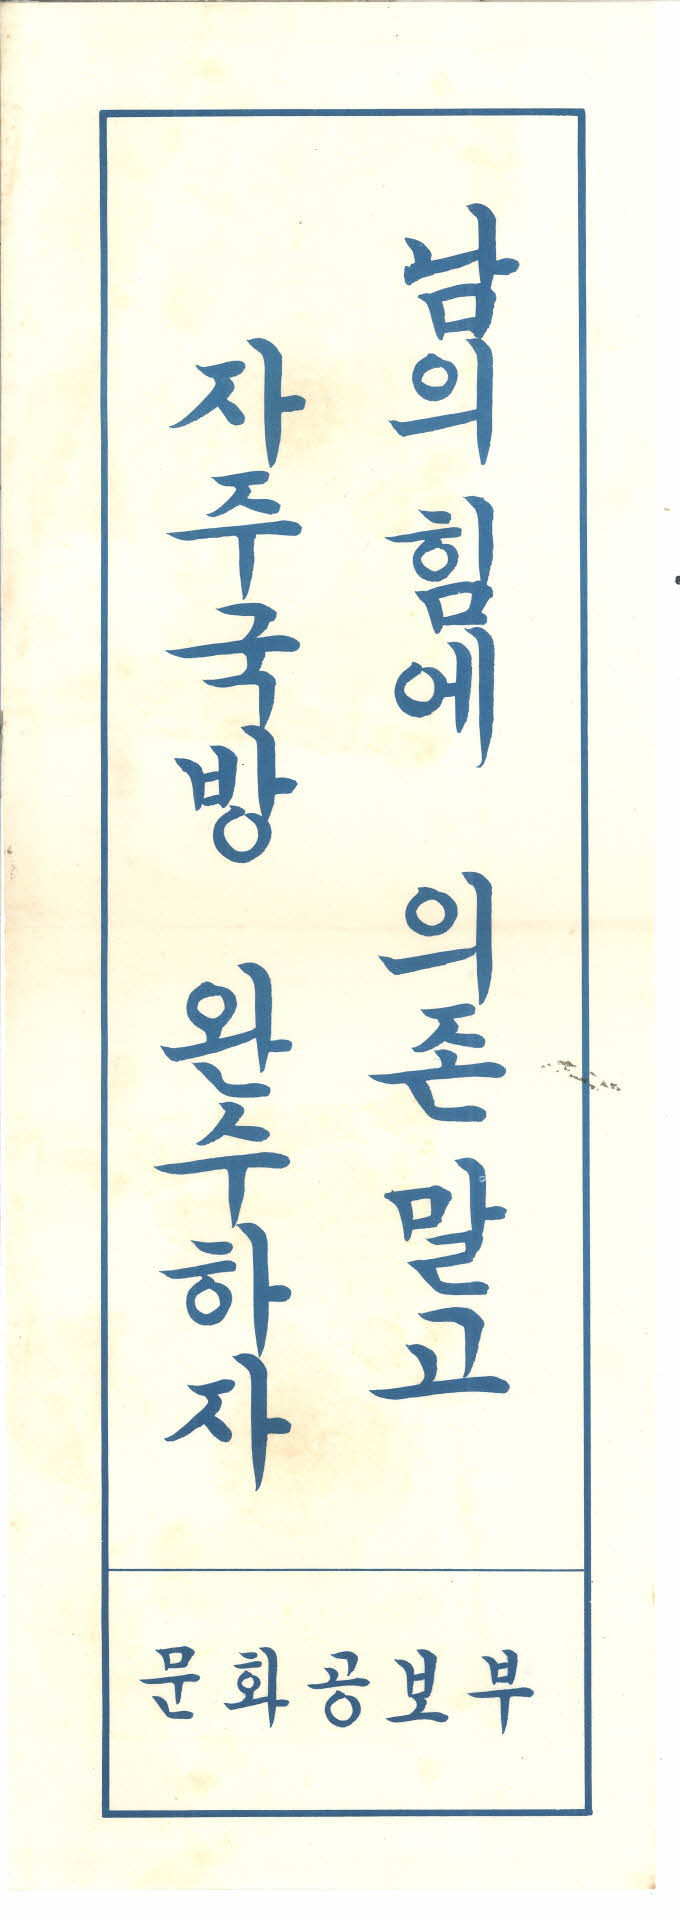 남의 힘에 의존 말고
자주국방 완수하자
문화공보부